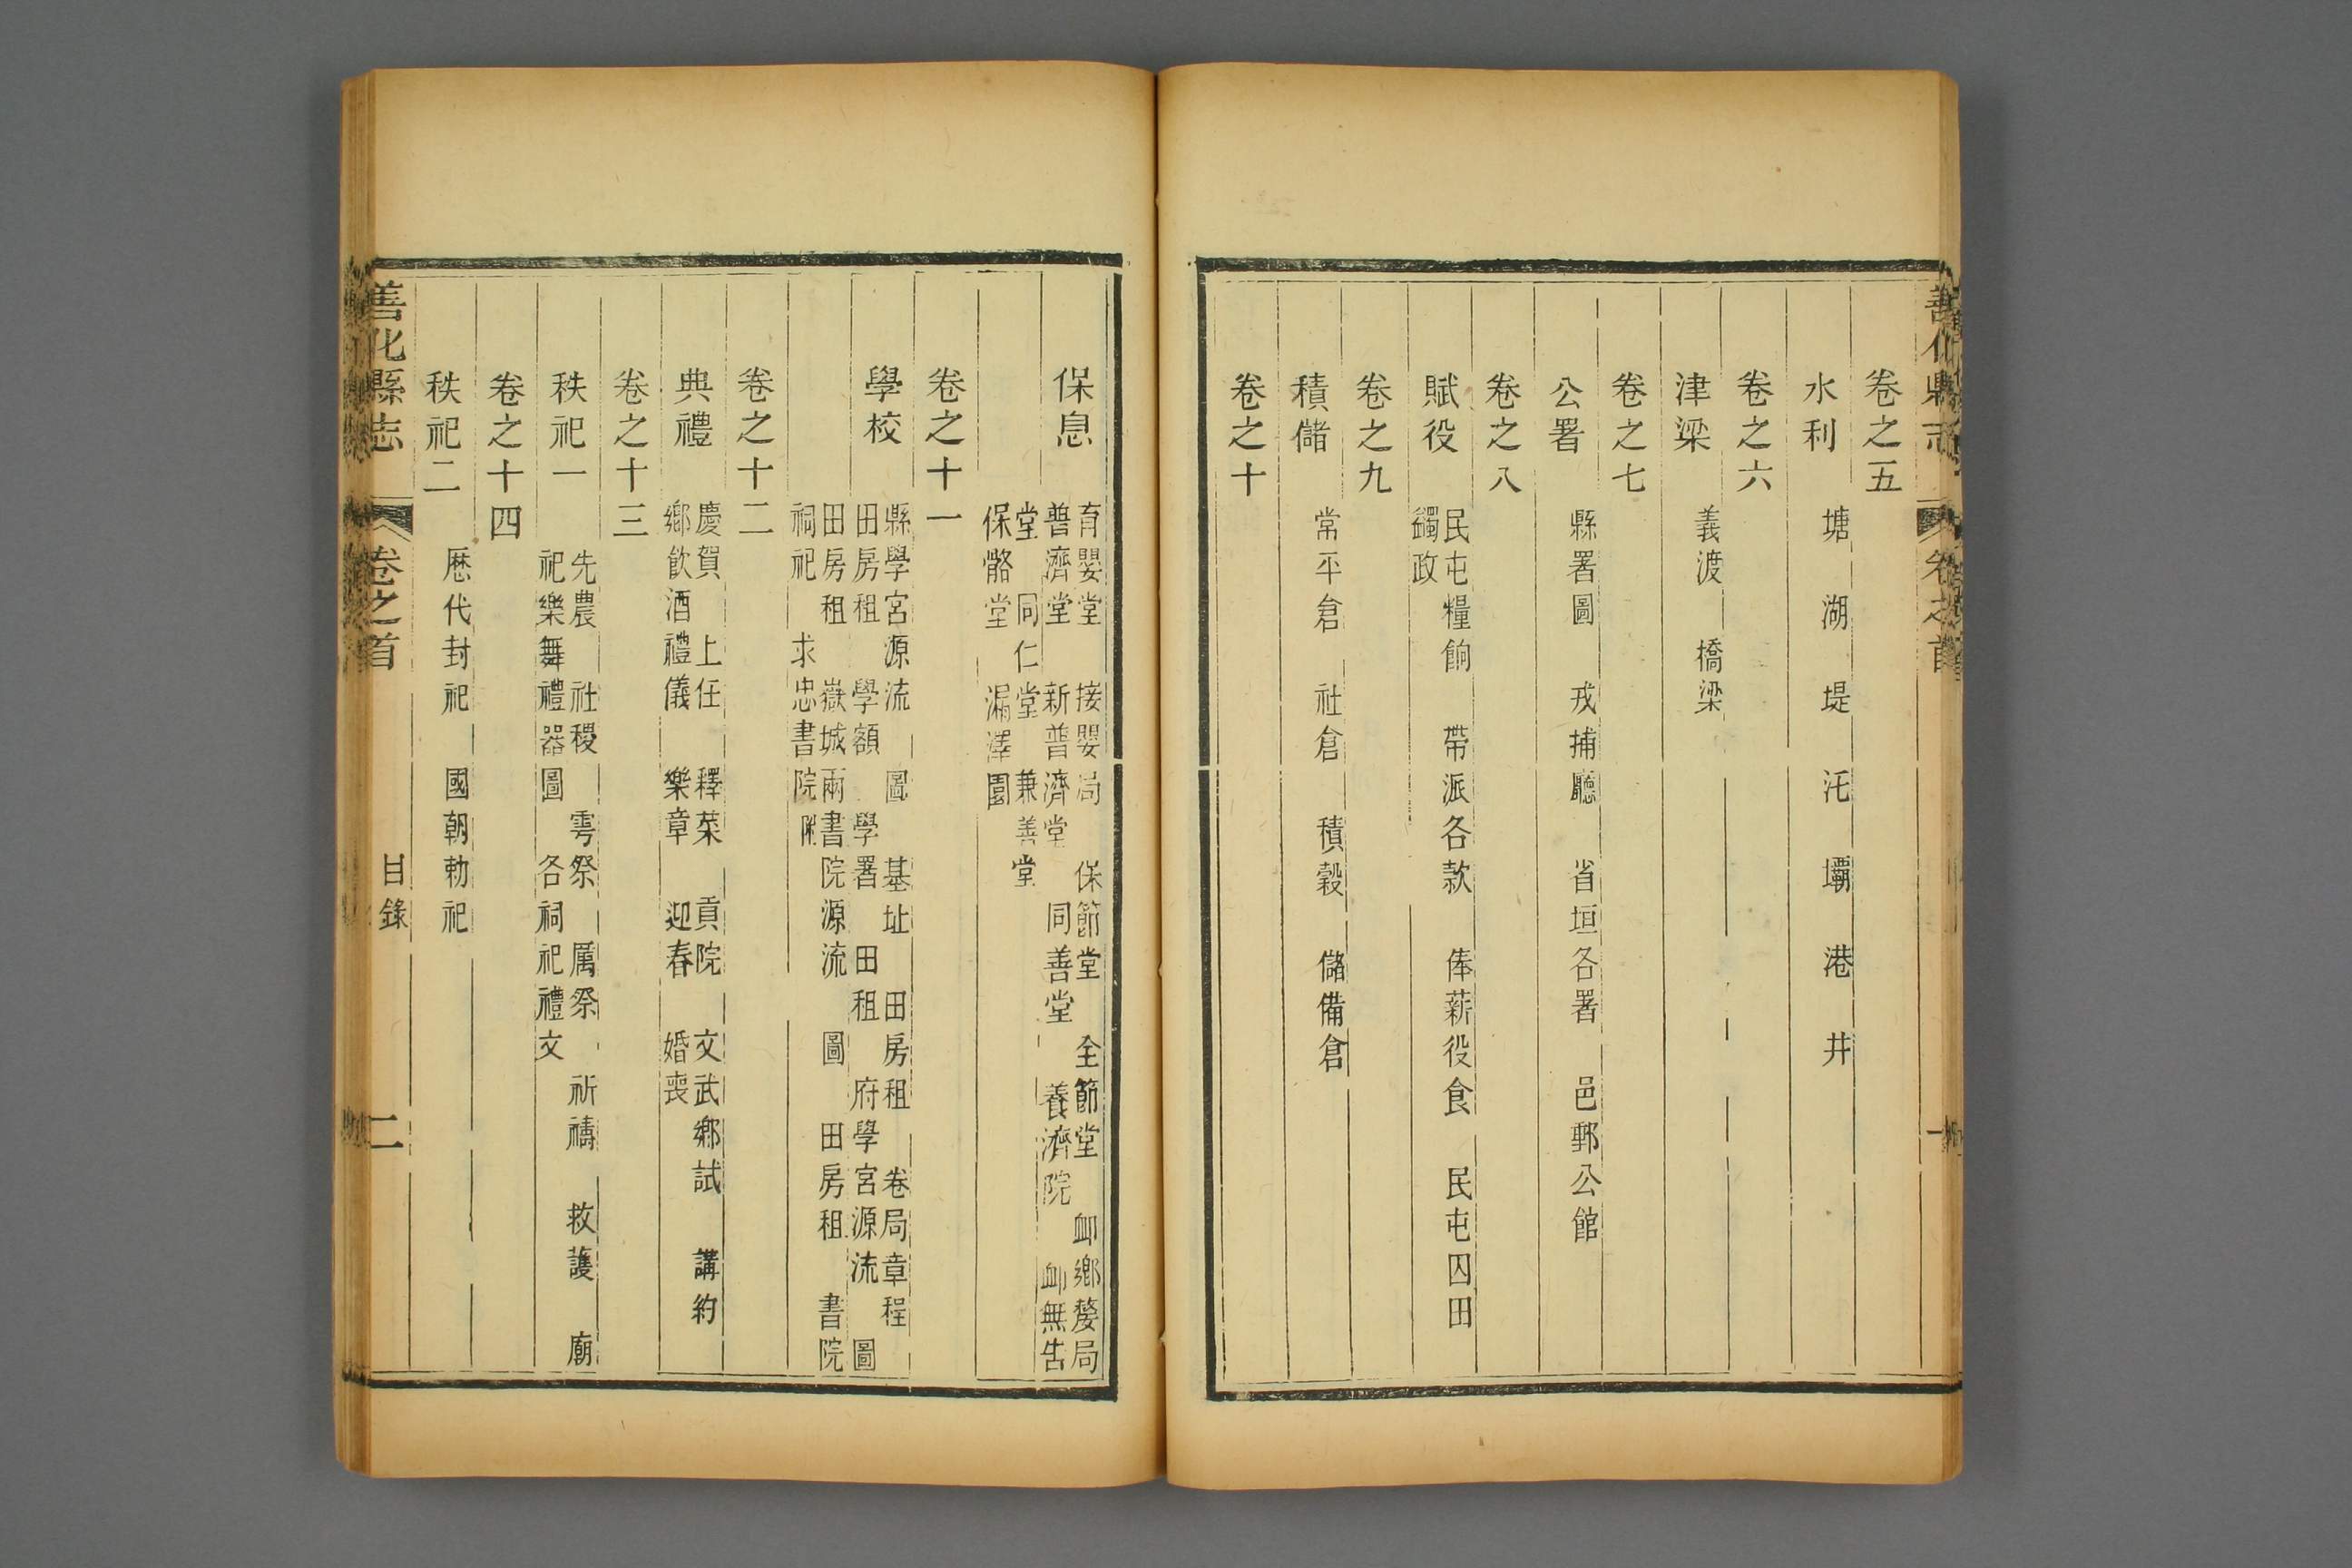 善化縣志 卷之首 一
卷之五
水利 塘 湖 堤 汑 壩 港 井
卷之六
津梁 義渡 橋梁
卷之七
公署 縣署圖 戎捕廳 省垣各署 邑郵公館
卷之八
賦役 民屯糧餉 帶派各款 俸薪役食 民屯囚田
蠲政
卷之九
積儲 常平倉 社倉 積穀 儲備倉
卷之十
保息 育嬰堂 接嬰局 保節堂 全節堂 卹鄉嫠局
普濟堂 新普濟堂 同善堂 養濟院 卹無告
堂 同仁堂 兼善堂
保骼堂 漏澤園
卷之十一
學校 縣學宮源流 圖 基址 田房租 卷局章程
田房租 學額 學署 田租 府學宮源流 圖
田房租 嶽城兩書院源流 圖 田房租 書院
祠祀 求忠書院附
卷之十二
典禮 慶賀 上任 釋菜 貢院 文武鄉試 講約
鄉飲酒禮儀 樂章 迎春 婚喪
卷之十三
秩祀一 先農 社稷 雩祭 厲祭 祈禱 救護 廟
祀樂舞禮器圖 各祠祀禮文
卷之十四
秩祀二 歷代封祀 國朝勅祀
善化縣志 卷之首 目錄 二